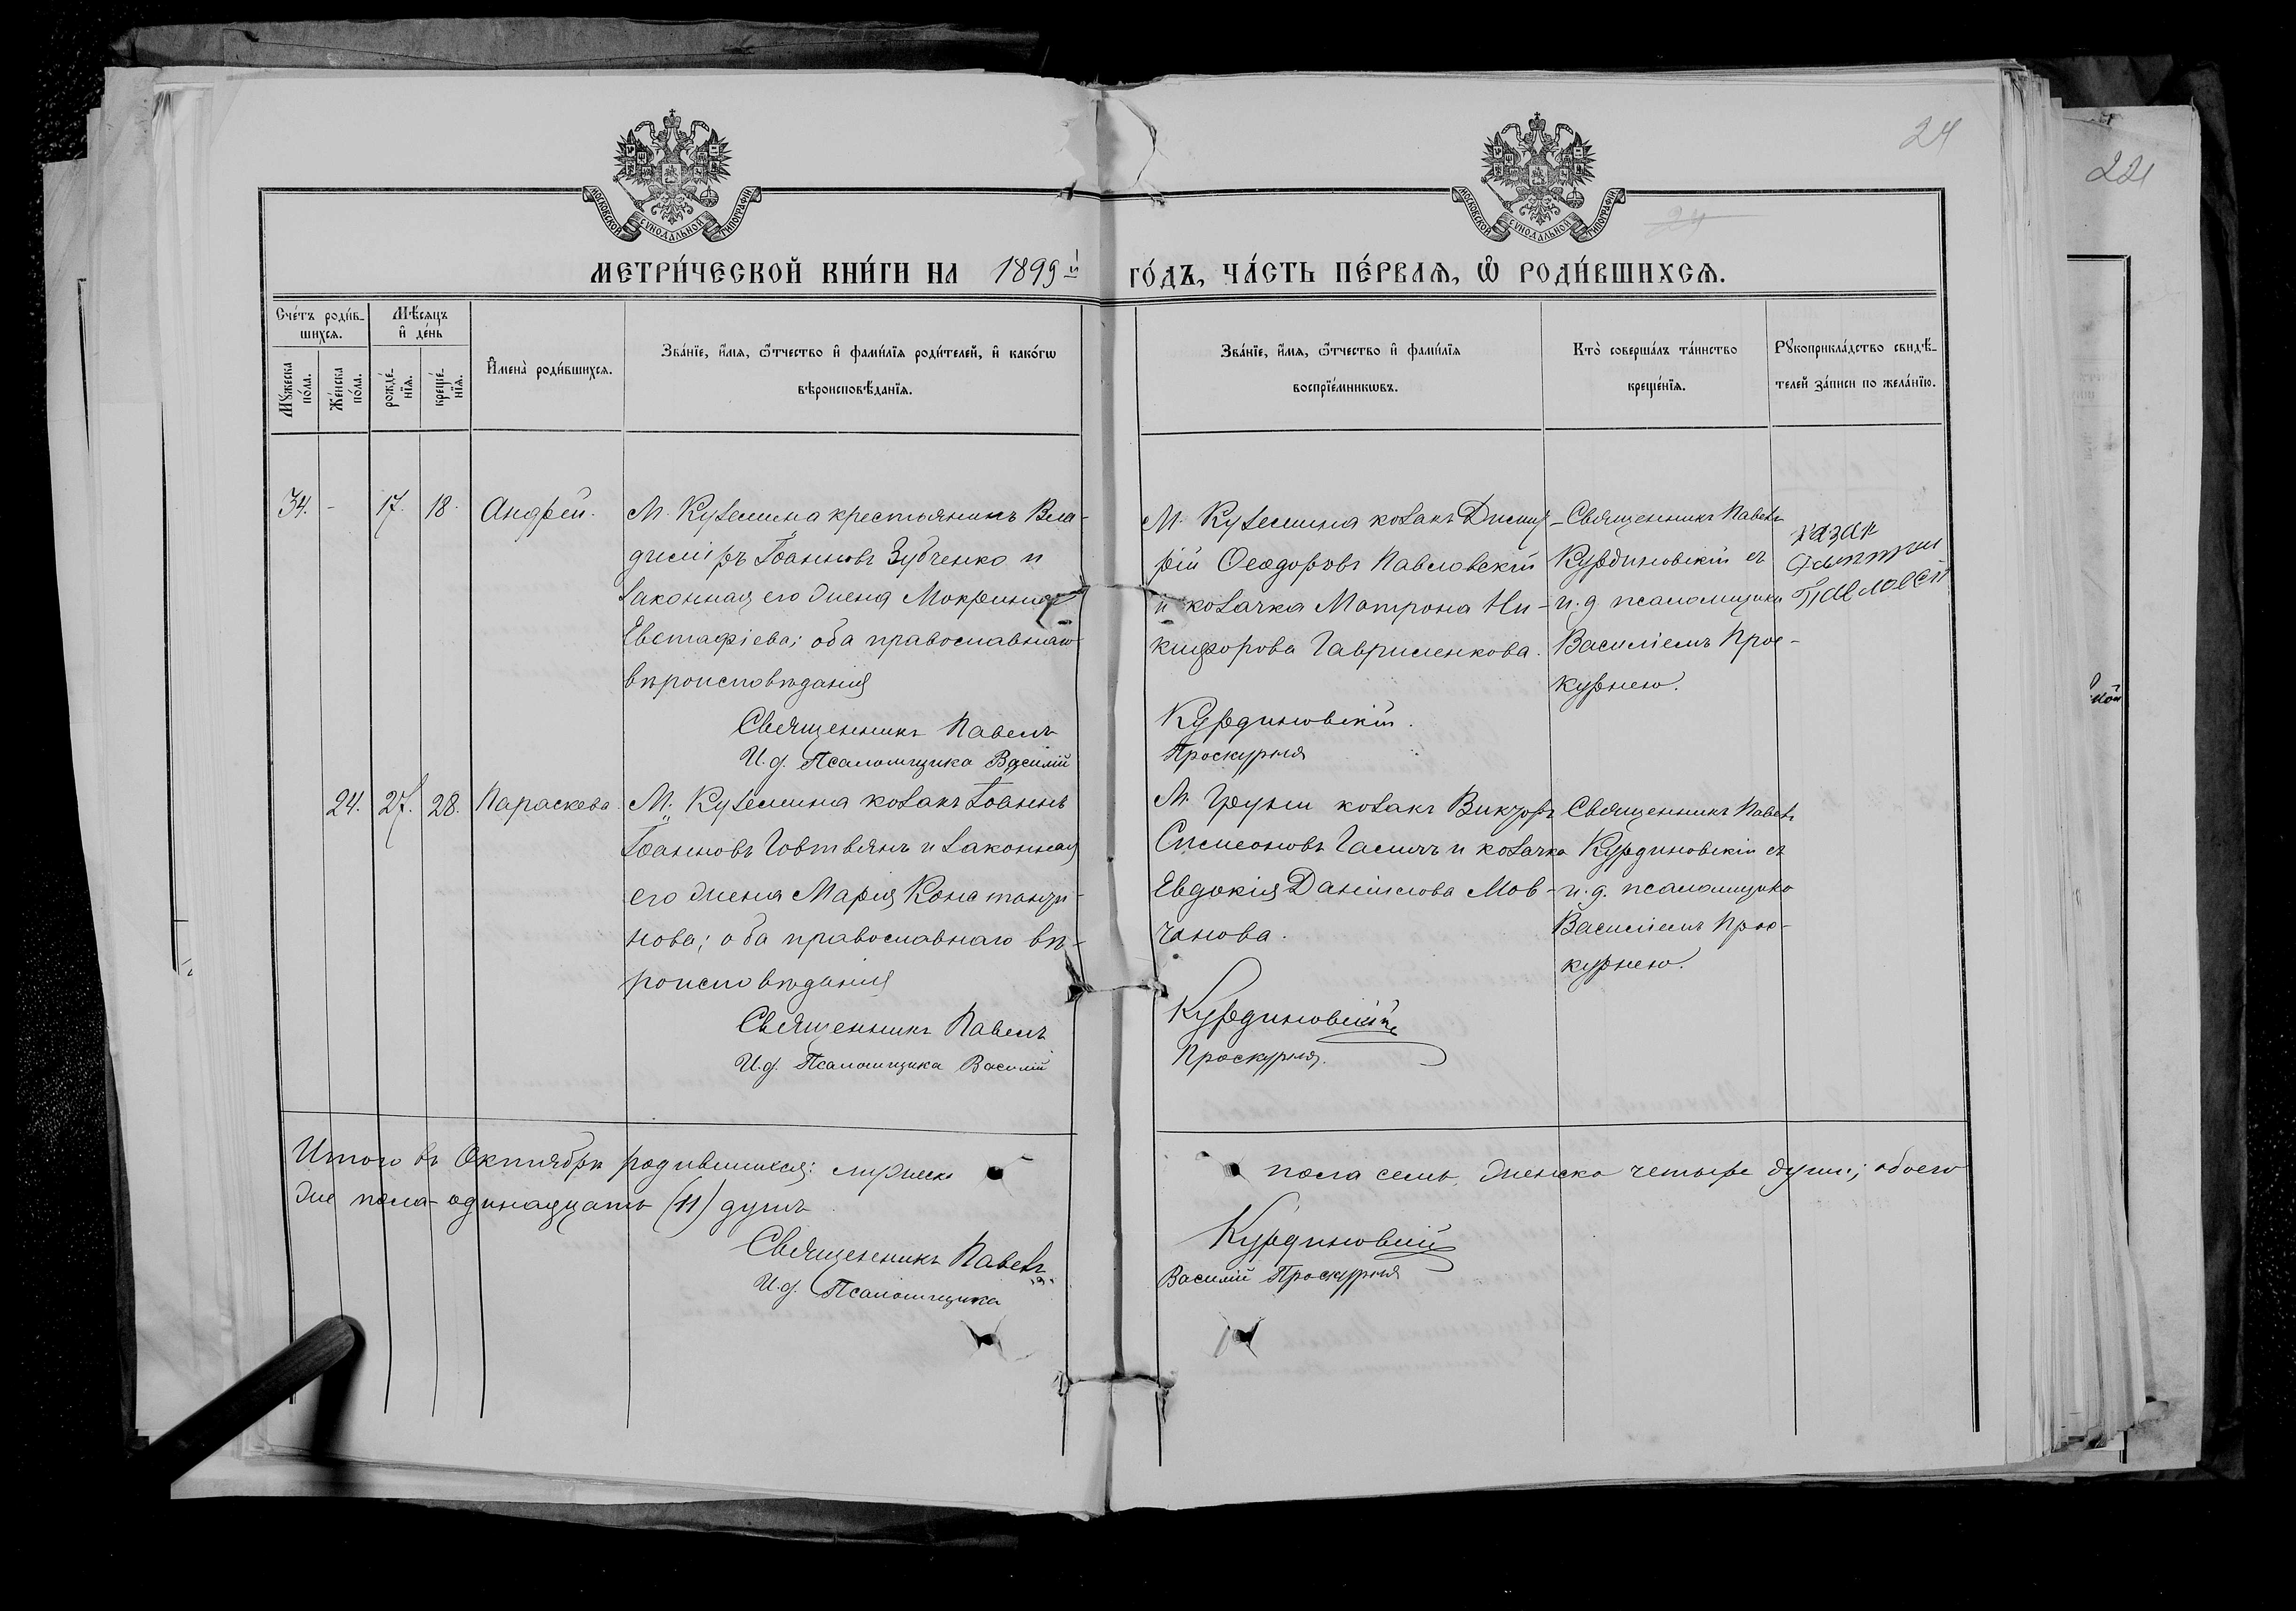 МОСКОВСКОЙ СѴНОДАЛЬНОЙ ТИПОГРАФІИ
МОСКОВСКОЙ СѴНОДАЛЬНОЙ ТИПОГРАФІИ
24
24
221
МЕТРИ́ЧЕСКОЙ КНИ́ГИ НА 1899й ГО́ДЪ, ЧА́СТЬ ПЕ́РВАѦ, Ѡ҆ РОДИ́ВШИХСѦ.
Сче́тъ роди́в-
шихсѧ.
Мꙋ́жеска по́ла.
Же́нска по́ла.
Мѣ́сѧцъ
и҆ де́нь
рожде́-
нїѧ.
креще́-
нїѧ.
И҆мена̀ роди́вшихсѧ.
Зва́нїе, и҆́мѧ, ѻ҆́тчество и҆ фамѝлїѧ роди́телей, и҆ како́гѡ
вѣроисповѣ́данїѧ.
Зва́нїе, и҆́мѧ, ѻ҆́тчество и҆ фами́лїѧ
воспрїе́мникѡвъ.
Кто̀ соверша́лъ та́инство
креще́нїѧ.
Рꙋкоприкла́дство свидѣ́-
телей за́писи по жела́нїю.
34. - 17. 18. Андрей.
М. Куземина крестьянинъ Вла-
диміръ Іоанновъ Зубченко и
законная его жена Мокрина
Евстафіева; оба православнаго
вѣроисповѣданія
Священникъ Павелъ
И.д. Псаломщика Василій
М. Куземина козакъ Димит-
рій Ѳеодоровъ Павловскій
и козачка Матрона Ни-
кифорова Гавриленкова.
Курдиновскій.
Проскурня
Священникъ Павелъ
Курдиновскій съ
и.д. псаломщика
Василіемъ Прос-
курнею.
казак
24. 27. 28. Параскева.
М. Куземина козакъ Іоаннъ
Іоанновъ Говтвянъ и законная
его жена Марія Константи-
нова; оба православнаго вѣ-
роисповѣданія
Священникъ Павелъ
И.д. Псаломщика Василій
М. Груни козакъ Викторъ
Симеоновъ Гасичъ и козачка
Евдокія Даніилова Мов-
чанова.
Курдиновскій
Проскурня.
Священникъ Павелъ
Курдиновскій съ
и.д. псаломщика
Василіемъ Прос-
курнею.
Итого въ Октябрѣ родившихся: мужеска пола семь, женска четыре души; обоего
же пола одинадцать (11) душъ
Священникъ Павелъ Курдиновскій
И.д. Псаломщика Василій Проскурня